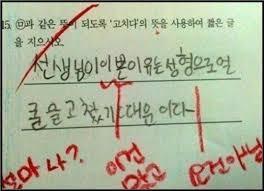 15. ㉥과 같은 뜻이 되도록 '고치다'의 뜻을 사용하여 짧은 글
을 지으시오
선생님이 이쁜이유는 성형으로 얼
굴을 고쳤기 대문이다.
이건
맞고